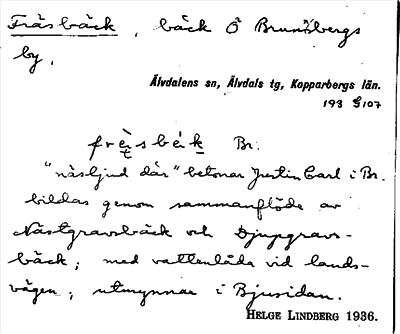 Fräsbäck, bäck Ö Brunnsbergs
by.
Älvdalens sn, Älvdals tg, Kopparbergs län.
193 S107
frè̱tsbék Br.
"näsljud där" betonar Justin Carl i Br.
bildas genom sammanflöde av
Nästgravsbäck och Djupgravs-
bäck; med vattenlåda vid lands-
vägen; utmynnar i Bjusidan.
HELGE LINDBERG 1936.